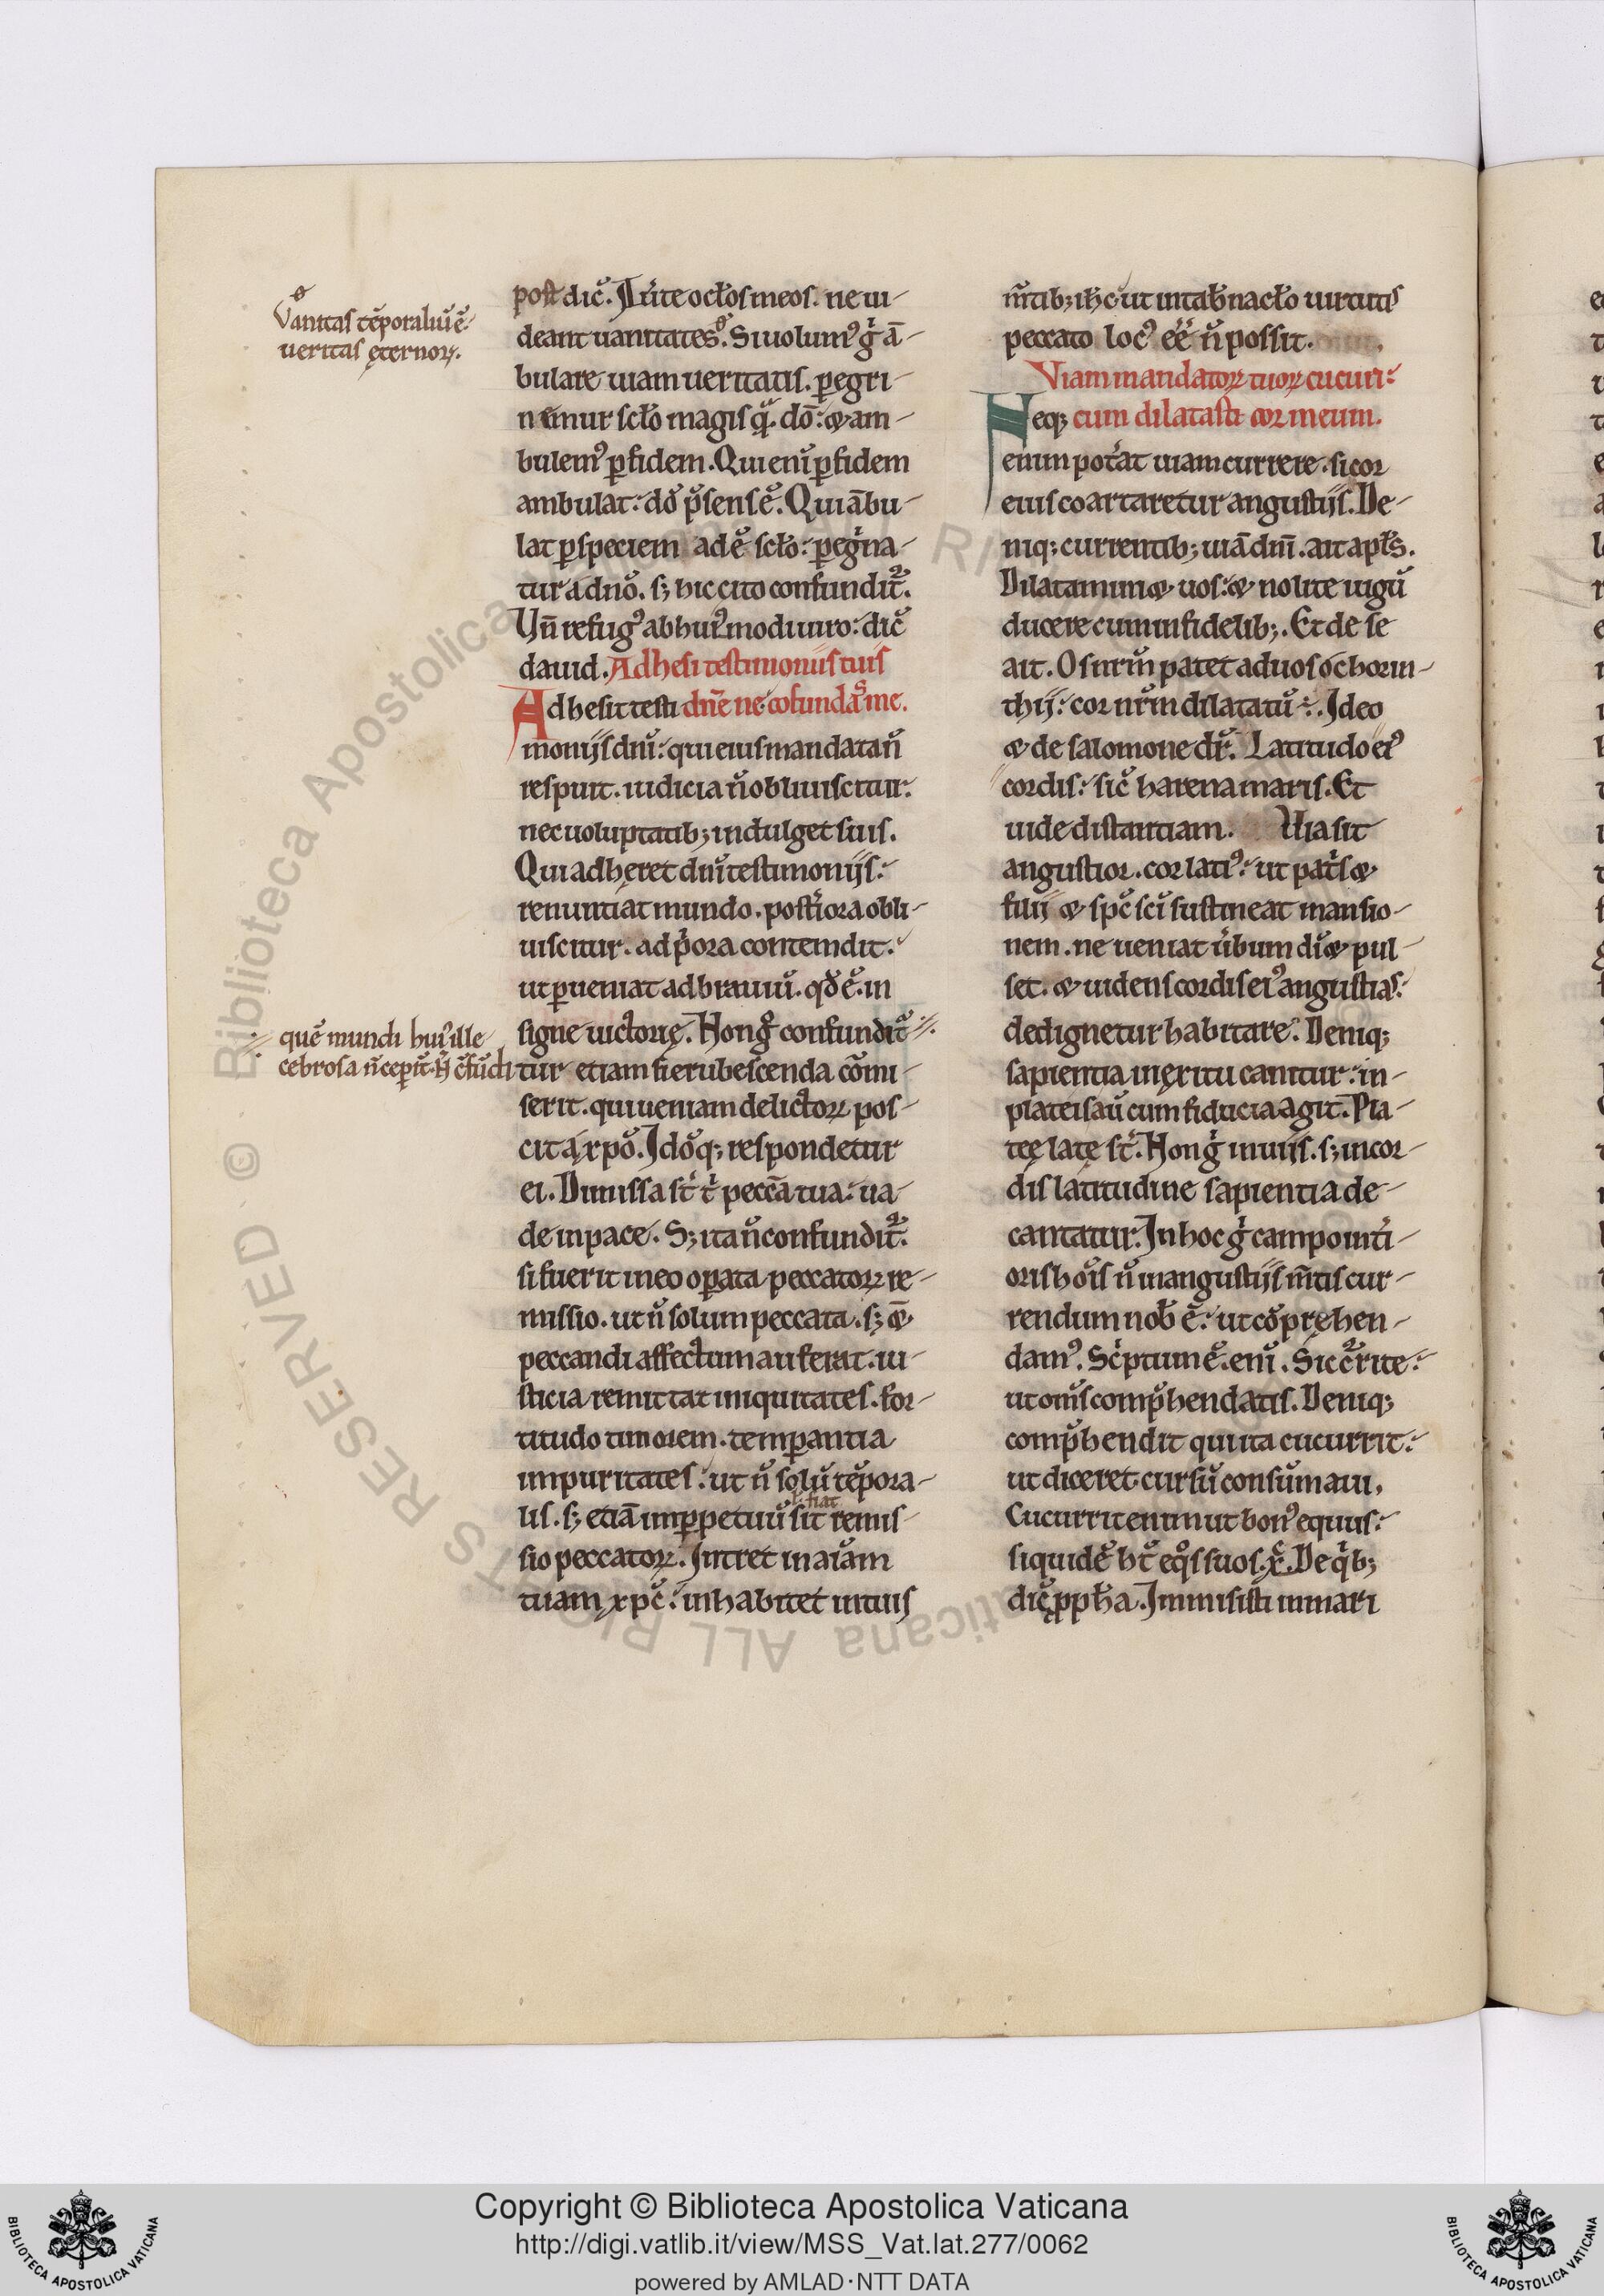 Vanitas tēporaliū ē
ueritas ęternoꝝ.
post dic̄. Auͥte oclo̅s meos. ne ui-
deant uanitates. Si uolumꝰ gͥ ā-
bulare uiam ueritatis. ꝑegri-
nemur scl̄o magis qͣ dō: & am-
bulemꝰ ꝑ fidem. Qui eni ꝑ fidem
ambulat: dō p̄sens ē. Qui ābu-
lat ꝑ speciem adē scl̄o: ꝑegͥna-
tur a dnō. sꝫ hic cito confundit᷑.
Vn̄ refugꝰ ab huiꝰmodi uiro: dic̄
dauid. Adhesi testimoniis tuis
Adhesit testi dn̄e ne cōfundaˢ me.
moniis dnī: qui eius mandata n̄
respuit. iudicia n̄ obliuiscitur:
nec uoluptatibꝫ indulget suis.
Qui adheret dnī testimoniis:
renuntiat mundo. postͥora obli-
uiscitur. ad pͥora contendit:
ut ꝑueniat ad brauiū. qd̄ ē in
signe uictorię. Non gͦ confundit᷑
quē mundi huiꝰ ille
cebrosa n̄ ceꝑit. N̄ c̄fūdi
tur etiam si erubescenda cōmi-
serit. qui ueniam delictoꝝ pos-
cit a xpō. Idōqꝫ respondetur
ei. Dimissa st̄ tͥ peccā tua: ua-
de in pace. Sꝫ ita n̄ confundit᷑.
si fuerit in eo oꝑata peccatoꝝ re-
missio. ut n̄ solum peccata. sꝫ &
peccandi affectum auferat. iu-
sticia remittat iniquitates. for-
titudo timorem. temꝑantia
impuritates: ut n̄ solū tēpora-
lis. sꝫ etiā in ꝑpetuū sit remis-
fiat
sio peccatoꝝ. Intret in aīam
tuam xpc̄: inhabitet intuis
m̄tibꝫ ih̄c ut in tab̄nacl̄o uirtutis
peccato locꝰ eē n̄ possit.
Viam mandatoꝝ tuoꝝ cucuri:
Neqꝫ cum dilatasti cor meum.
enim potͥat uiam currere. si cor
eius coartaretur angustiis. De-
niqꝫ currentibꝫ uiā dnī. ait apl̄s.
Dilatamini & uos: & nolite iugū
ducere cum infidelibꝫ. Et de se
ait. Os nr̄m patet ad uos o chorin-
thii: cor nr̄m dilatatū ÷. Ideo
& de salomone dr̄. Latitudo eiꝰ
cordis: sic̄ harena maris. Et
uide distantiam. Via sit
angustior. cor latiꝰ: ut patͥs &
filii & spc̄ scī sustineat mansio-
nem. ne ueniat ūbum dī & pul-
set. & uidens cordis eiꝰ angustias:
dedignetur habitare. Deniqꝫ
sapientia in ęxitu canitur: in
plateis aū cum fiducia agit. Pla-
tee late st̄. Non gͥ in uiis. sꝫ in cor-
dis latitudine sapientia de-
cantatur. In hoc gͥ campo intͥ-
oris hoīs n̄ in angustiis m̄tis cur-
rendum nob̄ ē: ut cōpręhen-
damꝰ. Scͥptum ē. enī. Sic c᷑rite:
ut om̄s comp̄hendatis. Deniqꝫ
comp̄hendit qui ita cucurrit:
ut diceret cursū consūmaui.
Cucurrit enim ut bonꝰ equus:
siquidē ht̄ eqͦs suos xc̄. De qͥbꝫ
dic̄ ꝓph̄a. Immisisti in mari
Copyright © Biblioteca Apostolica Vaticana
http://digi.vatlib.it/view/MSS_Vat.lat.277/0062
powered by AMLAD·NTT DATA